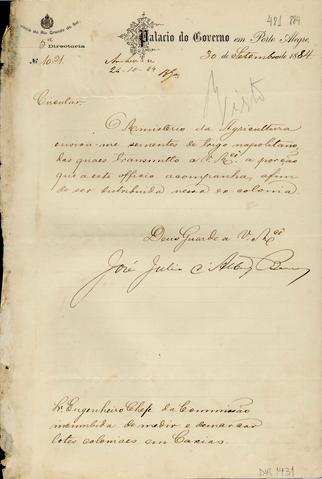 481 884
Palacio do Governo em Porto Alegre,
Directoria
30 de Setembro de 1884
Nº 1021
Archive-se
24-10-84
Visto
Circular.
O Ministerio da Agricultura
enviou-me sementes de trigo napolitano,
das quaes transmitto a V. Mcê a porção
que a este officio acompanha, afim
de ser distribuida nessa ex colonia.
Deus Guarde a V. Mcê
José Julio d'Albuq. Barros
Sr. Engenheiro Chefe da Commissão
incumbida de medir e demarcar
lotes coloniaes em Caxias.